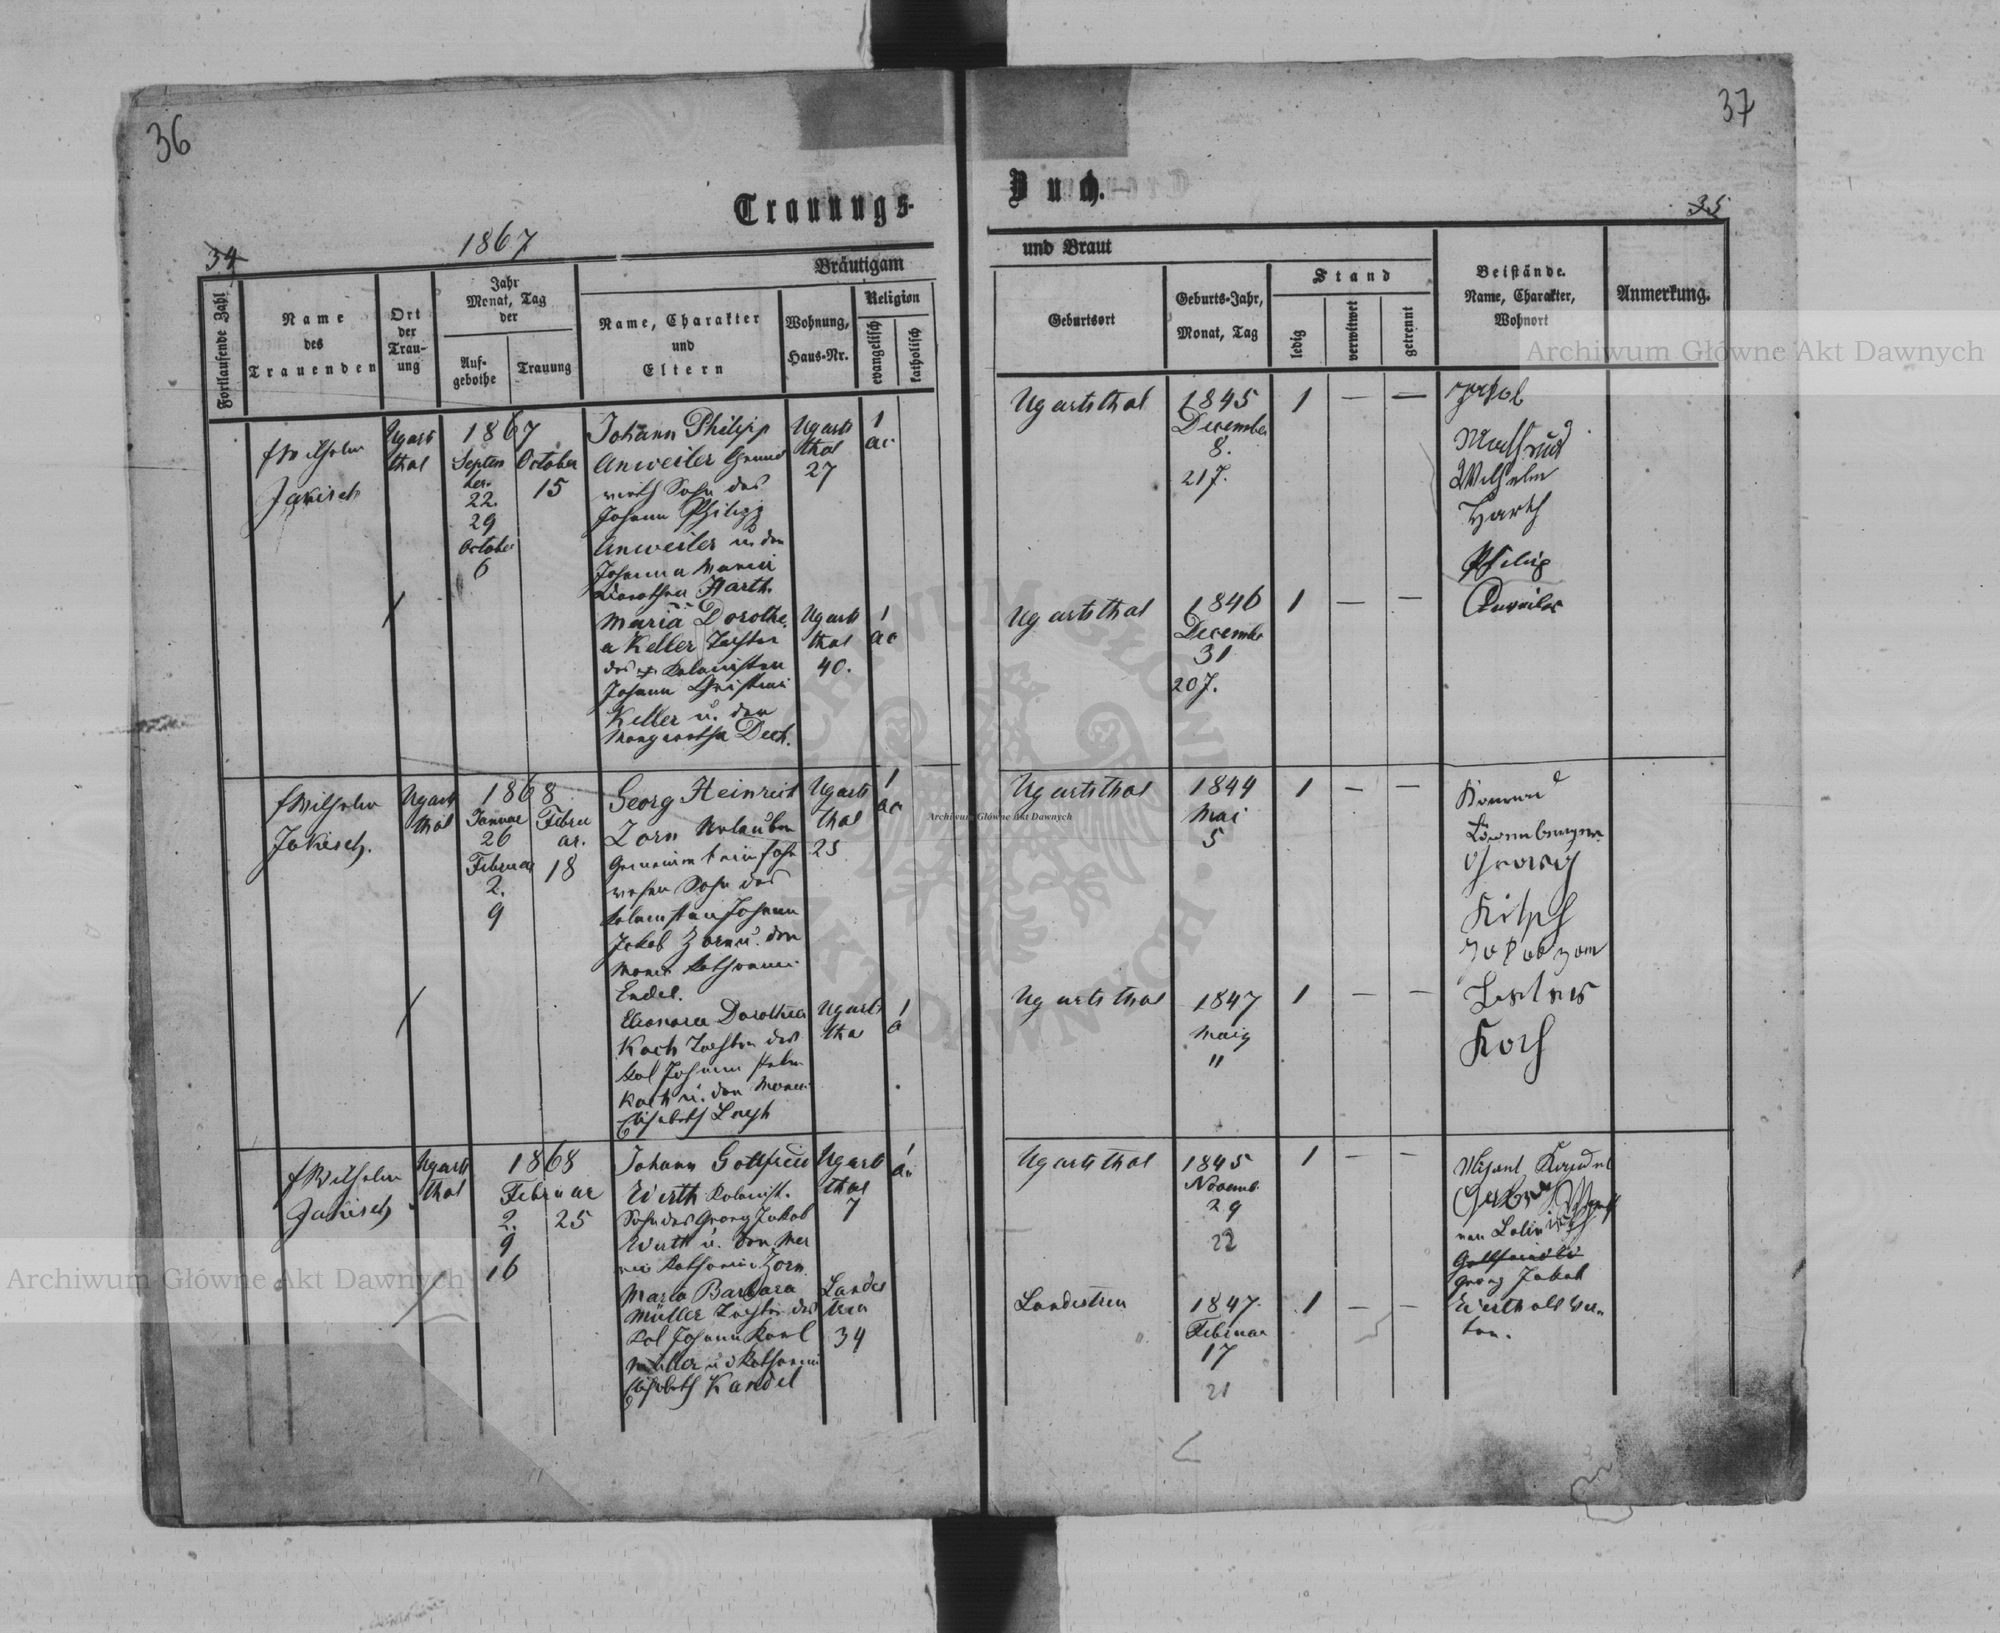 36
37
Trauungs-
Buch.
34
1867
35
Bräutigam
und Braut
Fortlaufende Zahl
Name
des
Trauenden
Ort
der
Trau-
ung
Jahr
Monat, Tag
der
Auf-
gebothe
Trauung
Name, Charakter
und
Eltern
Wohnung,
Haus-Nr.
Religion
evangelisch
katholisch
Geburtsort
Geburts-Jahr,
Monat, Tag
Stand
ledig
verwitwet
getrennt
Beistände.
Name, Charakter,
Wohnort
Anmerkung.
Wilhelm
Jakisch
Ugarts
thal
1867
Septem
ber
22.
29
October
6
October
15
Johann Philipp
Anweiler Grund
wirth Sohn des
Johann Philipp
Anweiler u. der
Johanna Maria
Dorothea Harth.
Ugarts
thal
27
1
Ugartsthal
1845
December
8.
21 J.
1 — —
Jakob
Wilhelm
Harth
Philip
Anweiler
Maria Dorothe
a Keller Tochter
des Kolonisten
Johann Christian
Keller u. der
Margaretha Dech.
Ugarts
thal
40.
1
Ugartsthal
1846
December
31
20 J.
1 — —
Wilhelm
Jakisch.
Ugarts
thal
1868
Januar
26
Februar
2.
9
Febru
ar.
18
Georg Heinrich
Zorn Urlauber
Sohn des
Kolonisten Johann
Jakob Zorn u. der
Maria Katharina
Endel.
Ugarts
thal
25
1
Ugartsthal
1844
Mai
5
1 — —
Konrad
Georg
Jakob Zorn
Koch
Eleonora Dorothea
Koch Tochter des
Kol Johann Peter
Koch u. der Maria
Elisabeth
Ugarts
tha
1
Ugartsthal
1847
Maiy
11
1 — —
Wilhelm
Jakisch
Ugarts
thal
1868
Februar
2. 25
9
16
Johann Gottfried
Wirth Kolonist.
Sohn des Georg Jakob
Wirth u. der Ma
ria Katharina Zorn
Ugarts
thal
7
1
Ugartsthal
1845
Novemb.
29
22
1 — —
Kandel
Georg Jakob
Wirth als Va-
ter.
Maria Barbara
Müller Tochter des
Kol Johann Karl
Müller u d Katharina
Elisabeth Kandel
Landes
treu
34
Landestreu
1847.
Februar
17
21
1 — —
Archiwum Główne Akt Dawnych
Archiwum Główne Akt Dawnych
Archiwum Główne Akt Dawnych
ARCHIWUM GŁÓWNE AKT DAWNYCH